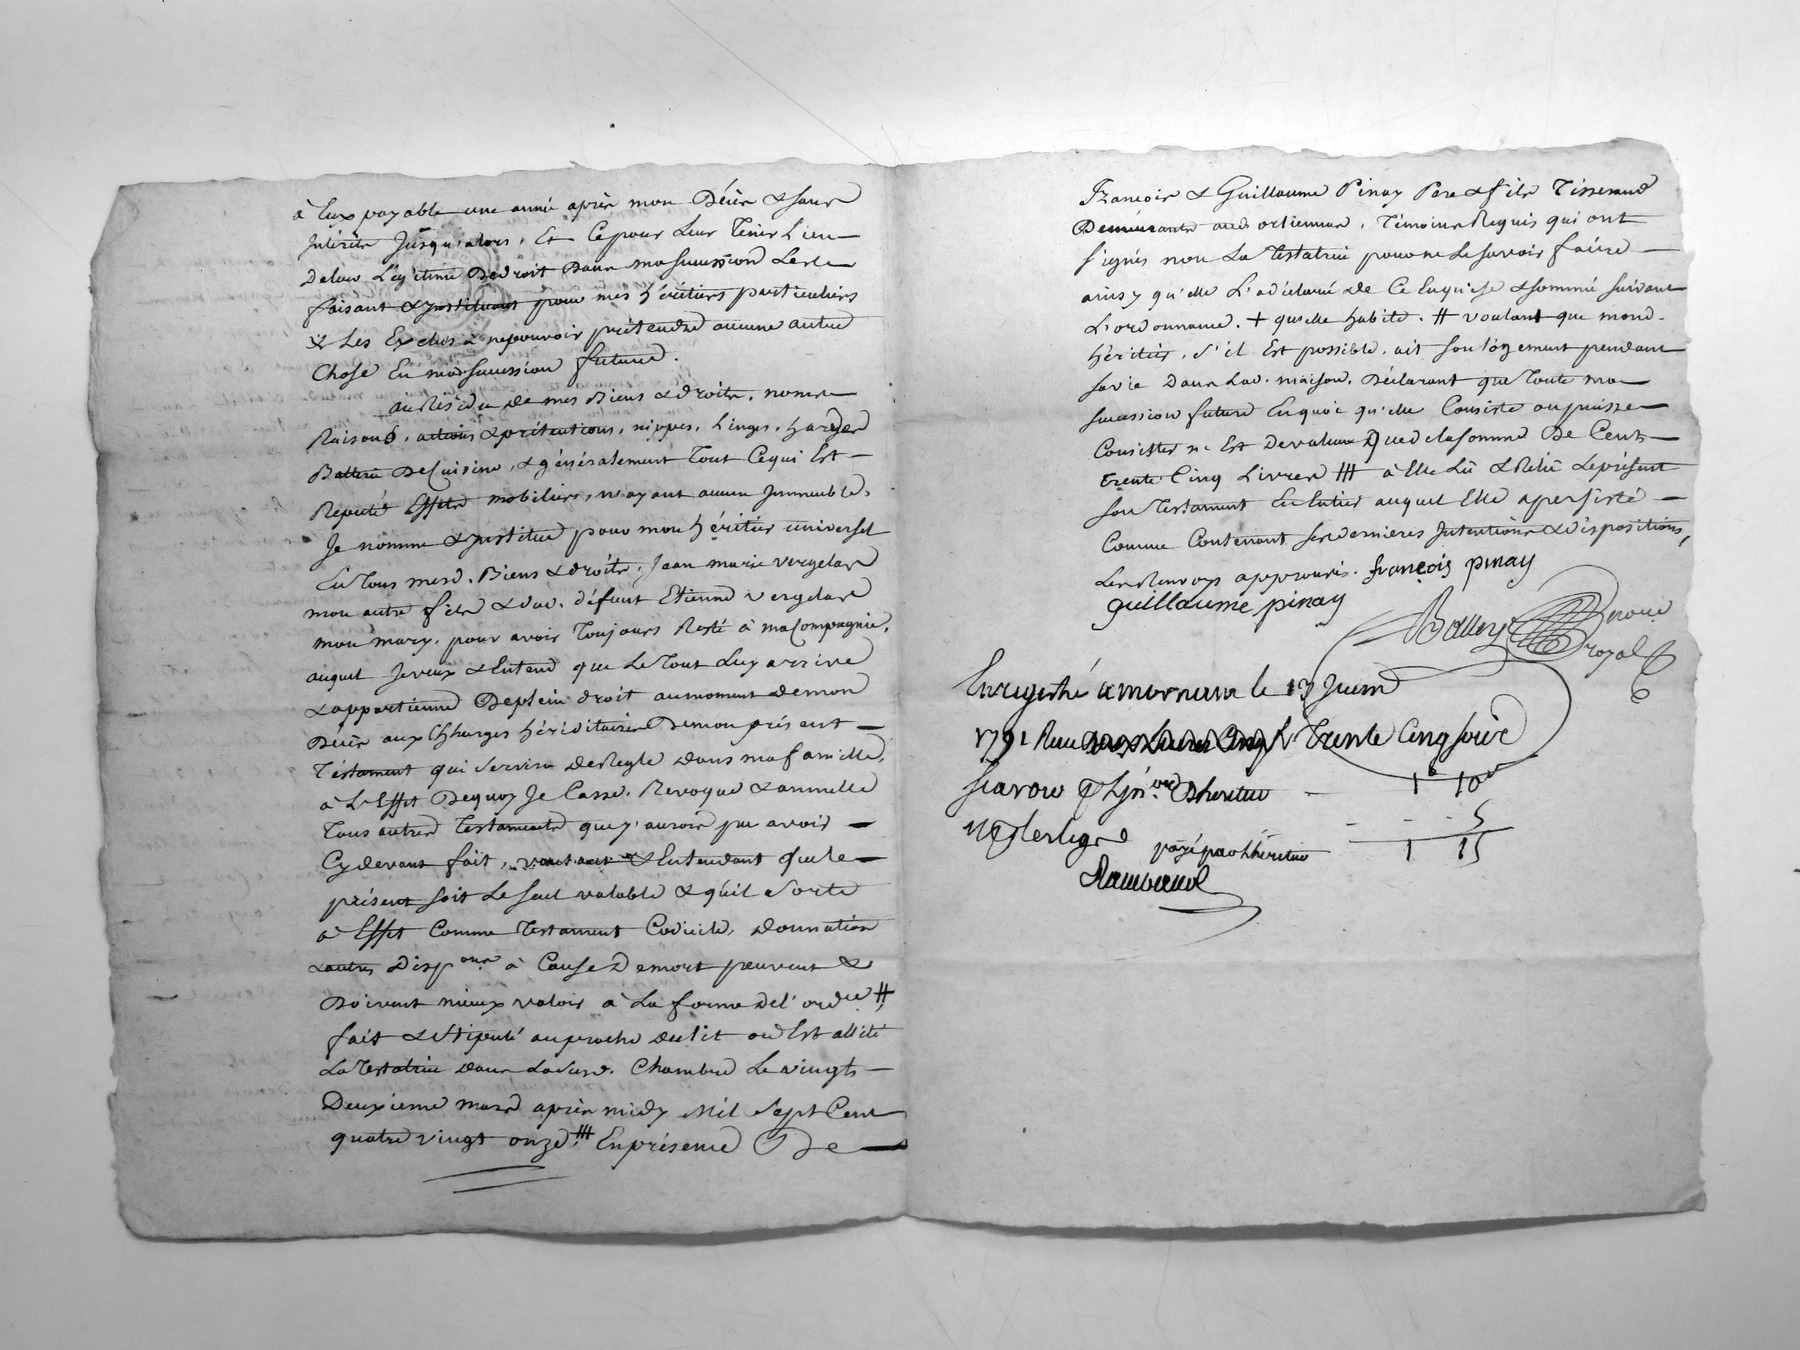 à Eux payable une année après mon Décès & sans
Intérêts Jusqu'alors, Et Ce pour Leur Tenir Lieu
De Leur Légitime De droit Dans ma succession Les
faisant & Instituant pour mes héritiers particuliers
& Les Exclus à ne pouvoir prétendre aucune autre
Chose En ma succession future.
au Résidu de mes Biens & droits, noms
Raisons, actions & prétentions, nippes, Linges, hardes
Batterie De Cuisine, & généralement Tout Ce qui Est
Réputé Effets mobiliers, n'ayant aucun Immeuble,
Je nomme & Institue pour mon héritier universel
En Tous mesd. Biens & droits, Jean marie vergelas
mon autre fils & dud. défunt Etienne vergelas
mon mary, pour avoir Toujours Resté à ma Compagnie,
auquel Je veux & Entend que Le Tout Luy arrive
& appartienne De plein droit au moment de mon
Décès aux Charges héréditaires De mon présent
Téstament qui servira de Regle dans ma famille,
à L'Effet De quoy Je Casse, Revoque & annulle
Tous autres Testaments que j'aurois pu avoir
Cy devant fait, voulant & Entendant que le
présent soit Le seul valable & qu'il sorte
à Effet Comme Testament Codicile, donnation
& autres Disp.ons à Cause De mort peuvent &
Doivent mieux valoir à La forme de l'ordce #
fait & stipulé au proche du lit où Est alitée
La Testatrice dans La susd. Chambre Le vingt
Deuxieme mars après midy Mil Sept Cent
quatre vingt onze ## En présence De
François & Guillaume Pinay Pere & fils Tisserands
Demeurants aud. , Témoins Requis qui ont
signés non La Testatrice pour ne Le savoir faire
ainsy qu'elle L'a déclaré de Ce Enquise & sommé suivant
L'ordonnance. + qu'elle habite. # voulant que mond.
héritier, s'il Est possible, ait son logement pendant
sa vie Dans Lad. maison, Déclarant que Toute ma
succession future En quoi qu'elle Consiste ou puisse
Consister n'Est De valeur Que de la somme De Cent
trente Cinq Livres ## à Elle Lû & Relû Le présent
son Testament En Entier auquel Elle a persisté
Comme Contenant ses dernieres Intentions & dispositions,
Les Renvoys approuvés. françois pinay
guillaume pinay
Balley noue
royal
Enregistré a mornant le 13 Juin
1791 Reçu Trente Cinq sous
scavoir
1# 10s
5
payé par Lhéritier
1 15
Rambaud